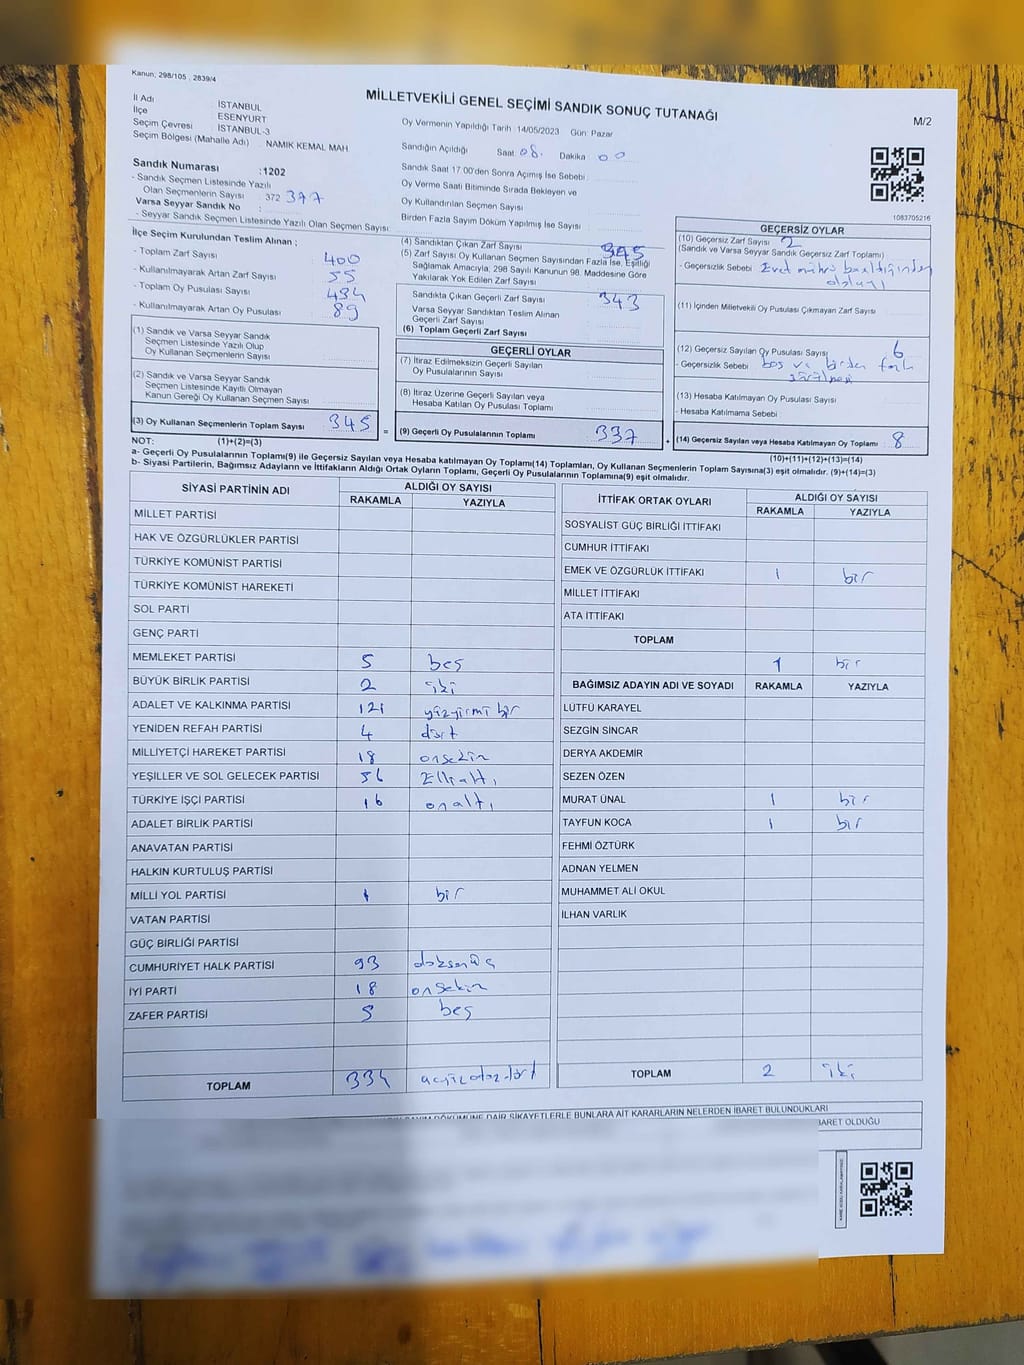 Kanun; 298/105 , 2839/4
MİLLETVEKİLİ GENEL SEÇİMİ SANDIK SONUÇ TUTANAĞI
M/2
İl Adı : İSTANBUL
İlçe : ESENYURT
Seçim Çevresi : İSTANBUL-3
Seçim Bölgesi (Mahalle Adı) : NAMIK KEMAL MAH
Oy Vermenin Yapıldığı Tarih :14/05/2023 Gün: Pazar
Sandığın Açıldığı Saat 08. Dakika 00
Sandık Saat 17.00'den Sonra Açılmış İse Sebebi
Oy Verme Saati Bitiminde Sırada Bekleyen ve
Oy Kullandırılan Seçmen Sayısı
Birden Fazla Sayım Döküm Yapılmış İse Sayısı
Sandık Numarası :1202
- Sandık Seçmen Listesinde Yazılı
Olan Seçmenlerin Sayısı : 372 377
Varsa Seyyar Sandık No :
- Seyyar Sandık Seçmen Listesinde Yazılı Olan Seçmen Sayısı
1083705216
İlçe Seçim Kurulundan Teslim Alınan ;
- Toplam Zarf Sayısı 400
- Kullanılmayarak Artan Zarf Sayısı 55
- Toplam Oy Pusulası Sayısı 434
- Kullanılmayarak Artan Oy Pusulası 89
(1) Sandık ve Varsa Seyyar Sandık
Seçmen Listesinde Yazılı Olup
Oy Kullanan Seçmenlerin Sayısı
(2) Sandık ve Varsa Seyyar Sandık
Seçmen Listesinde Kayıtlı Olmayan
Kanun Gereği Oy Kullanan Seçmen Sayısı
(3) Oy Kullanan Seçmenlerin Toplam Sayısı 345
(4) Sandıktan Çıkan Zarf Sayısı 345
(5) Zarf Sayısı Oy Kullanan Seçmen Sayısından Fazla İse, Eşitliği
Sağlamak Amacıyla, 298 Sayılı Kanunun 98. Maddesine Göre
Yakılarak Yok Edilen Zarf Sayısı
Sandıkta Çıkan Geçerli Zarf Sayısı 343
Varsa Seyyar Sandıktan Teslim Alınan
Geçerli Zarf Sayısı
(6) Toplam Geçerli Zarf Sayısı
GEÇERLİ OYLAR
(7) İtiraz Edilmeksizin Geçerli Sayılan
Oy Pusulalarının Sayısı
(8) İtiraz Üzerine Geçerli Sayılan veya
Hesaba Katılan Oy Pusulası Toplamı
= (9) Geçerli Oy Pusulalarının Toplamı 337 +
GEÇERSİZ OYLAR
(10) Geçersiz Zarf Sayısı 2
(Sandık ve Varsa Seyyar Sandık Geçersiz Zarf Toplamı)
- Geçersizlik Sebebi Evet mührü
(11) İçinden Milletvekili Oy Pusulası Çıkmayan Zarf Sayısı
(12) Geçersiz Sayılan Oy Pusulası Sayısı 6
- Geçersizlik Sebebi boş ve birden fazla
(13) Hesaba Katılmayan Oy Pusulası Sayısı
- Hesaba Katılmama Sebebi
(14) Geçersiz Sayılan veya Hesaba Katılmayan Oy Toplamı 8
NOT: (1)+(2)=(3)
(10)+(11)+(12)+(13)=(14)
a- Geçerli Oy Pusulaları Toplamı(9) ile Geçersiz Sayılan veya Hesaba katılmayan Oy Toplamı(14) Toplamları, Oy Kullanan Seçmenlerin Toplam Sayısına(3) eşit olmalıdır. (9)+(14)=(3)
b- Siyasi Partilerin, Bağımsız Adayların ve İttifakların Aldığı Ortak Oyların Toplamı, Geçerli Oy Pusulalarının Toplamına(9) eşit olmalıdır.
SİYASİ PARTİNİN ADI ALDIĞI OY SAYISI
RAKAMLA YAZIYLA
MİLLET PARTİSİ
HAK VE ÖZGÜRLÜKLER PARTİSİ
TÜRKİYE KOMÜNİST PARTİSİ
TÜRKİYE KOMÜNİST HAREKETİ
SOL PARTİ
GENÇ PARTİ
MEMLEKET PARTİSİ 5 beş
BÜYÜK BİRLİK PARTİSİ 2 iki
ADALET VE KALKINMA PARTİSİ 121 yüzyirmi bir
YENİDEN REFAH PARTİSİ 4 dört
MİLLİYETÇİ HAREKET PARTİSİ 18 onsekiz
YEŞİLLER VE SOL GELECEK PARTİSİ 56 Ellialtı
TÜRKİYE İŞÇİ PARTİSİ 16 onaltı
ADALET BİRLİK PARTİSİ
ANAVATAN PARTİSİ
HALKIN KURTULUŞ PARTİSİ
MİLLİ YOL PARTİSİ 1 bir
VATAN PARTİSİ
GÜÇ BİRLİĞİ PARTİSİ
CUMHURİYET HALK PARTİSİ 93 doksanüç
İYİ PARTİ 18 onsekiz
ZAFER PARTİSİ 5 beş
TOPLAM 334
İTTİFAK ORTAK OYLARI ALDIĞI OY SAYISI
RAKAMLA YAZIYLA
SOSYALİST GÜÇ BİRLİĞİ İTTİFAKI
CUMHUR İTTİFAKI
EMEK VE ÖZGÜRLÜK İTTİFAKI 1 bir
MİLLET İTTİFAKI
ATA İTTİFAKI
TOPLAM
1 bir
BAĞIMSIZ ADAYIN ADI VE SOYADI RAKAMLA YAZIYLA
LÜTFÜ KARAYEL
SEZGİN SİNCAR
DERYA AKDEMİR
SEZEN ÖZEN
MURAT ÜNAL 1 bir
TAYFUN KOCA 1 bir
FEHMİ ÖZTÜRK
ADNAN YELMEN
MUHAMMET ALİ OKUL
İLHAN VARLIK
TOPLAM 2 iki
DÖKÜMÜNE DAİR ŞİKAYETLERLE BUNLARA AİT KARARLARIN NELERDEN İBARET BULUNDUKLARI
BARET OLDUĞU